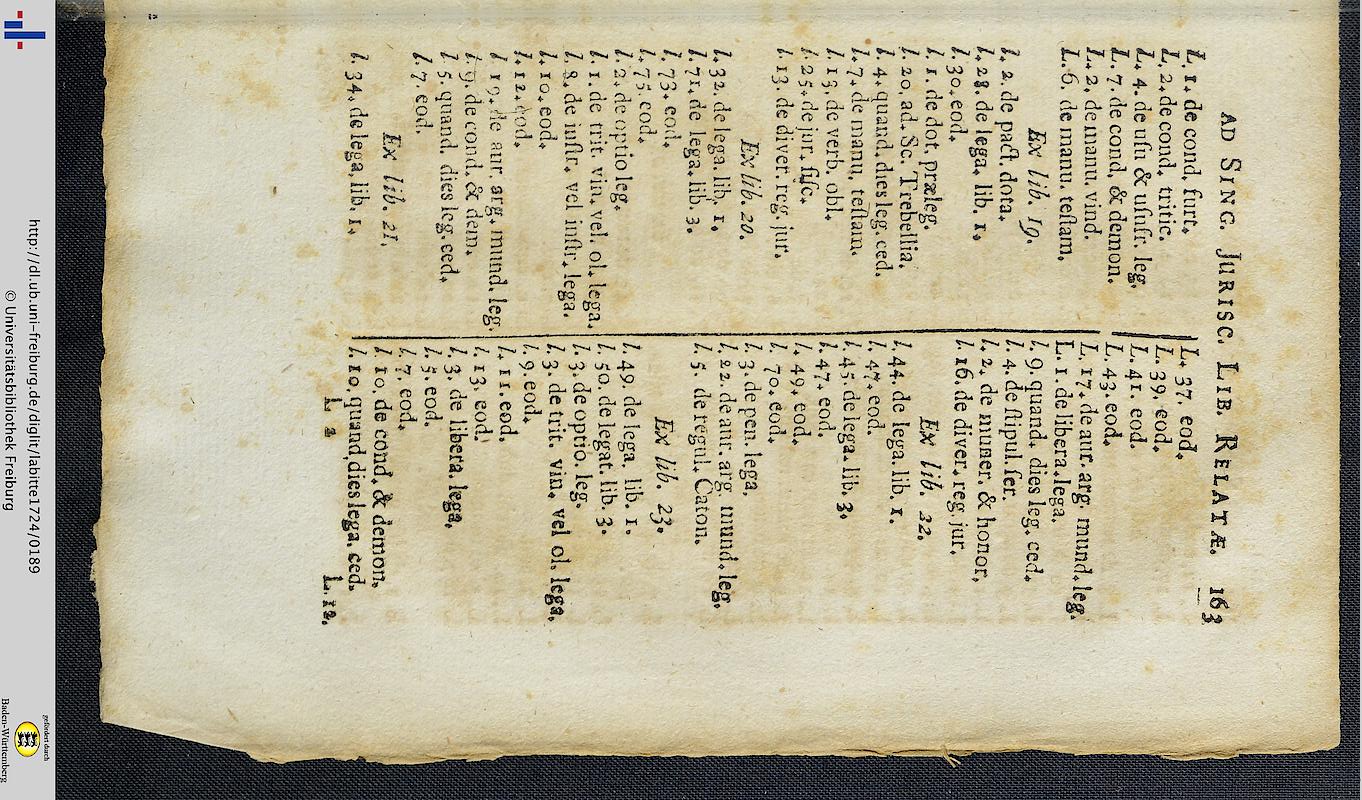 AD SING. JURISC. LIB. RELATÆ. 163
L. 1. de cond. furt.
L. 2. de cond. tritic.
L. 4. de usu & usufr. leg.
L. 7. de cond. & demon.
L. 2. de manu. vind.
L. 6. de manu. testam.
Ex lib. 19.
l. 2. de pact. dota.
l. 28. de lega. lib. 1.
l. 30. eod.
l. 1. de dot. præleg.
l. 20. ad. Sc. Trebellia.
l. 4. quand. dies leg. ced.
l. 7. de manu. testam.
l. 13. de verb. obl.
l. 25. de jur. fisc.
l. 13. de diver. reg. jur.
Ex lib. 20.
l. 32. de lega. lib. 1.
l. 71. de lega. lib. 3.
l. 73. eod.
l. 75. eod.
l. 2. de optio leg.
l. 1. de trit. vin. vel. ol. lega.
l. 8. de instr. vel instr. lega.
l. 10. eod.
l. 12. eod.
l. 19. de aur. arg. mund. leg.
l. 9. de cond. & dem.
l. 5. quand. dies leg. ced.
l. 7. eod.
Ex lib. 21.
l. 34. de lega. lib. 1.
L. 37. eod.
L. 39. eod.
L. 41. eod.
L. 43. eod.
L. 17. de aur. arg. mund. leg.
L. 1. de libera. lega.
l. 9. quand. dies leg. ced.
l. 4. de stipul. ser.
l. 2. de muner. & honor.
l. 16. de diver. reg. jur.
Ex lib. 22.
l. 44. de lega. lib. 1.
l. 47. eod.
l. 45. de lega. lib. 3.
l. 47. eod.
l. 49. eod.
l. 70. eod.
l. 3. de pen. lega.
l. 22. de aur. arg. mund. leg.
l. 5. de regul. Caton.
Ex lib. 23.
l. 49. de lega. lib. 1.
l. 50. de legat. lib. 3.
l. 3. de optio. leg.
l. 3. de trit. vin. vel ol. lega.
l. 9. eod.
l. 11. eod.
l. 13. eod.
l. 3. de libera. lega.
l. 5. eod.
l. 7. eod.
l. 10. de cond. & demon.
l. 10. quand. dies lega. ced.
L 2 L. 12.
http://dl.ub.uni-freiburg.de/diglit/labitte1724/0189
© Universitätsbibliothek Freiburg
gefördert durch
Baden-Württemberg